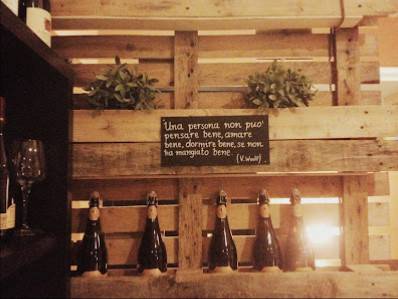 "Una persona non puo'
pensare bene, amare
bene, dormire bene, se non
ha mangiato bene"
(V. Woolf)